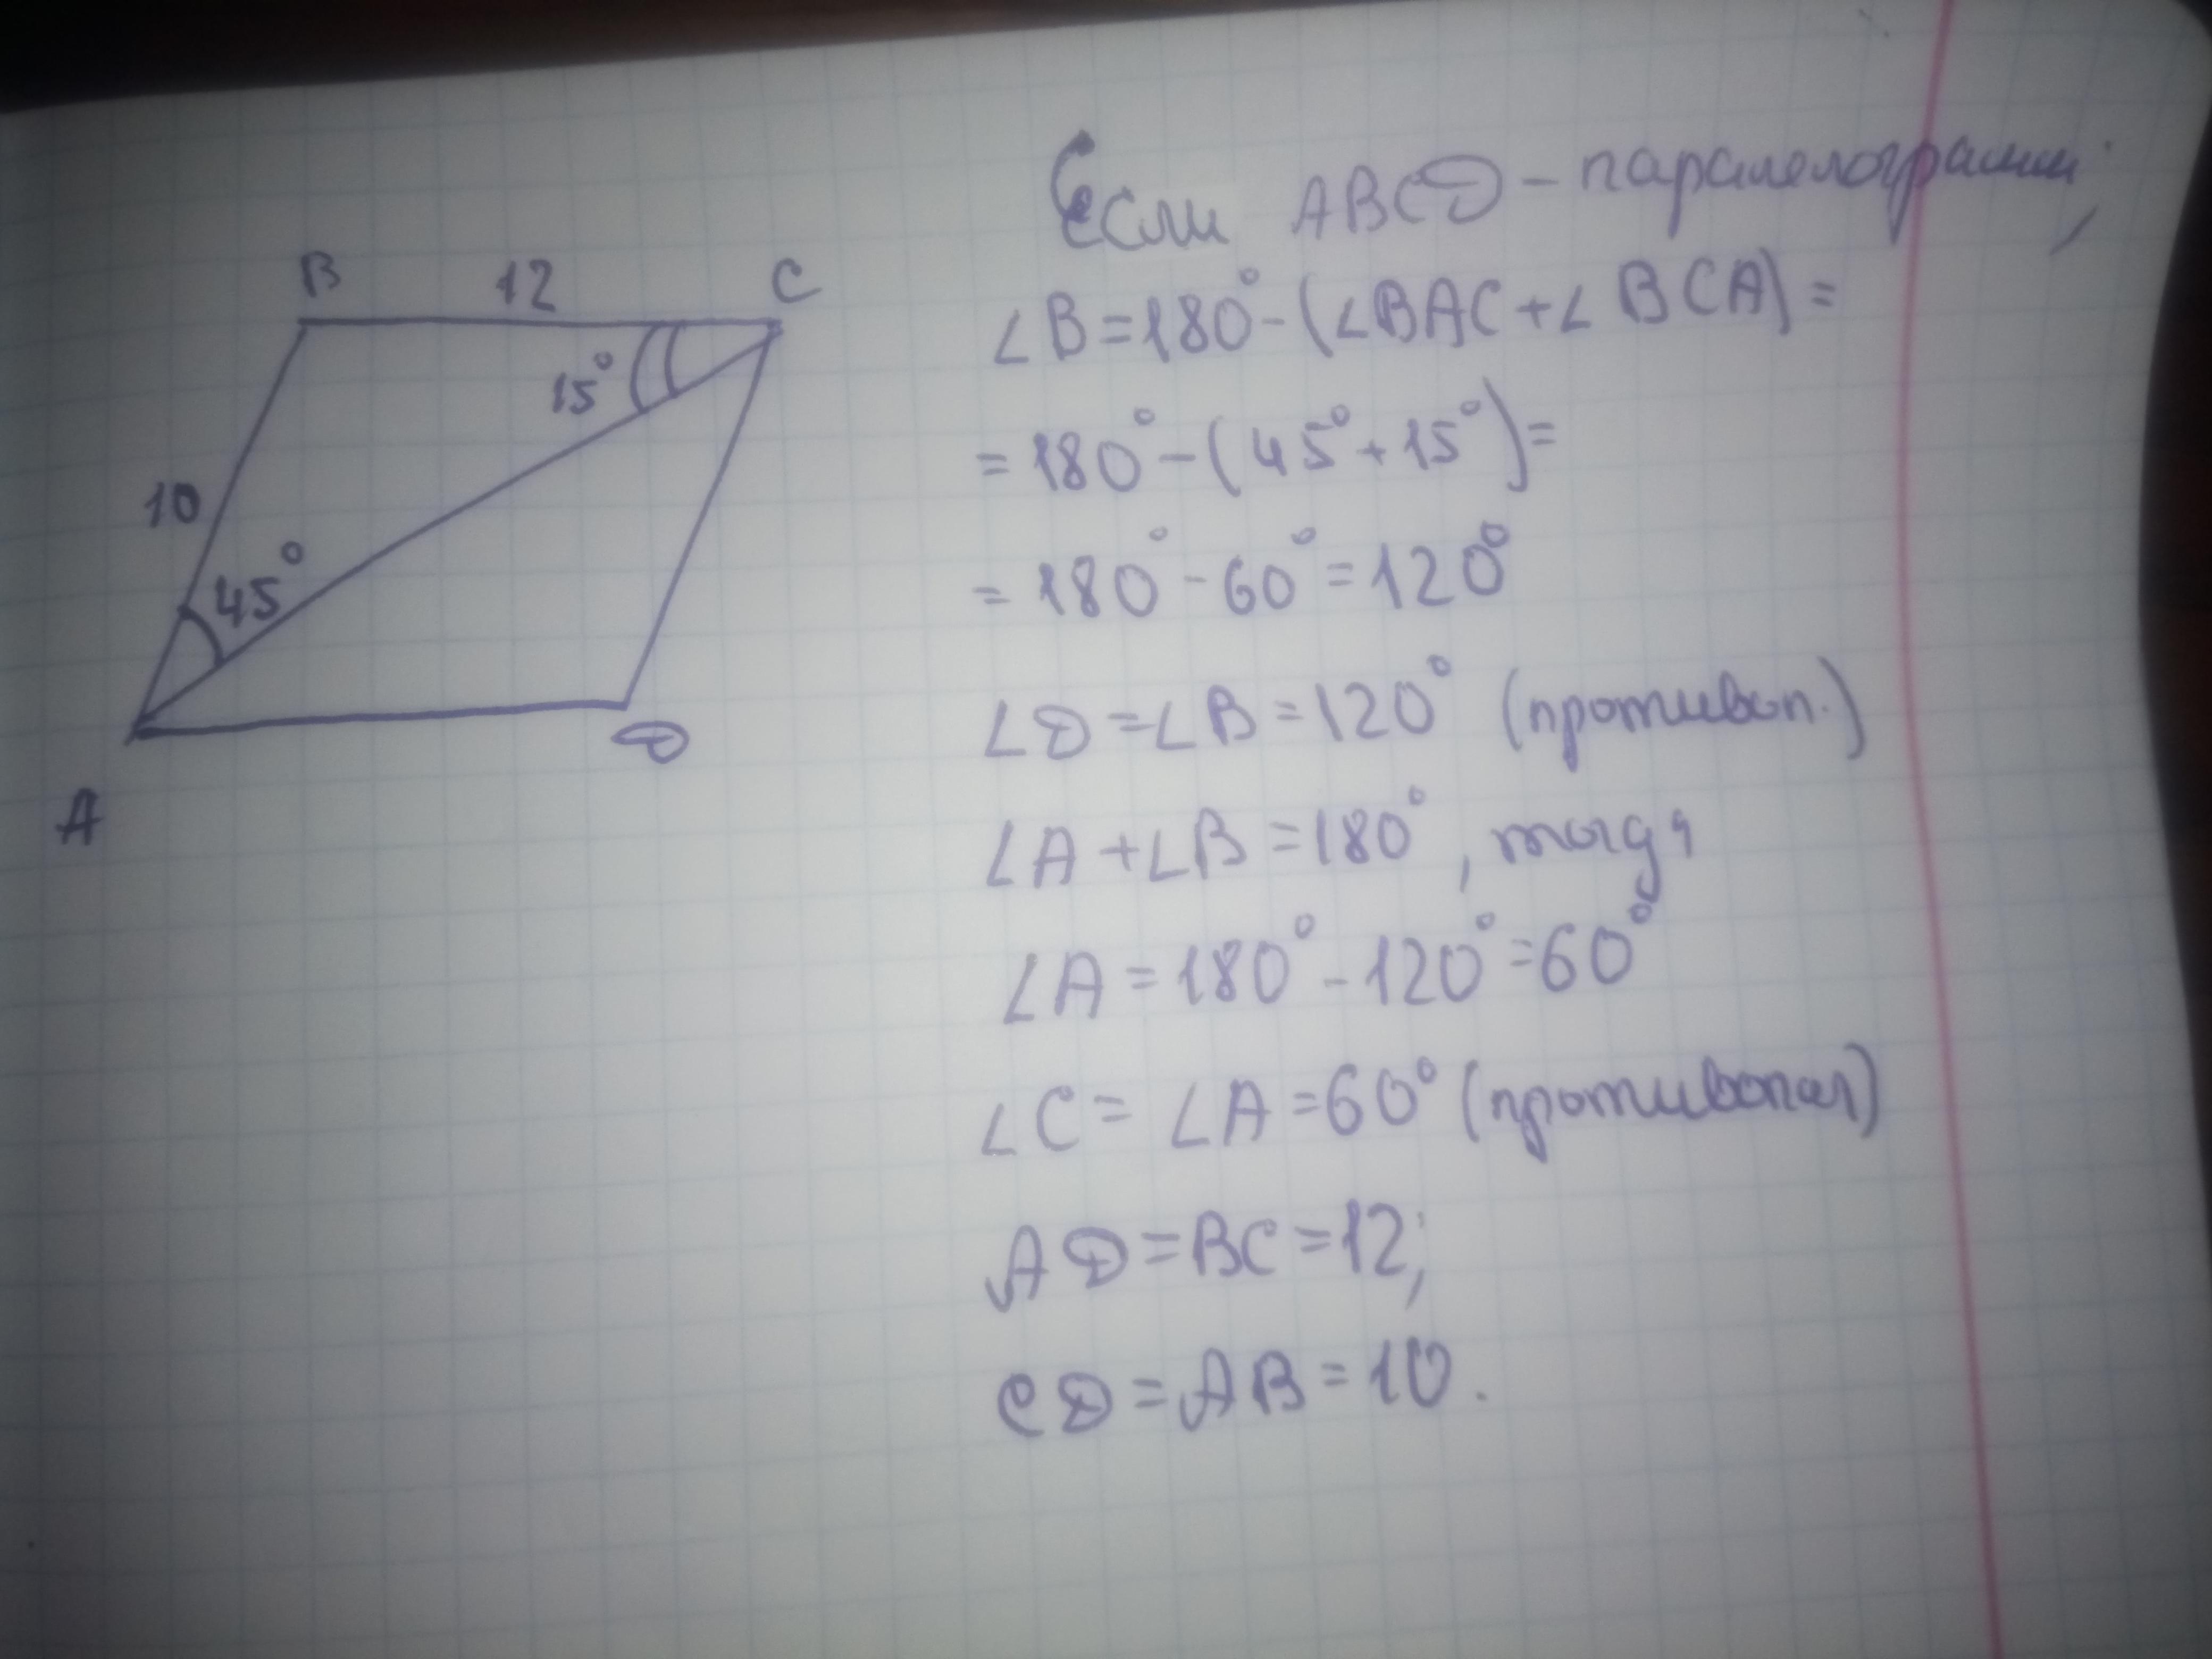 B 12 C
15°
10
45°
D
A
Если ABCD - паралелограмм;
∠B = 180° - (∠BAC + ∠BCA) =
= 180° - (45° + 15°) =
= 180° - 60° = 120°
∠D = ∠B = 120° (противоп.)
∠A + ∠B = 180°, тогда
∠A = 180° - 120° = 60°
∠C = ∠A = 60° (противопол)
AD = BC = 12;
CD = AB = 10.